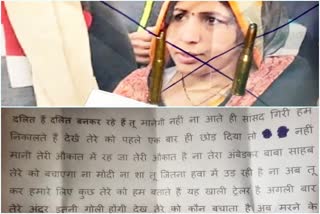 दलित हैं दलित बनकर रहे हैं तू मानेगी नहीं ना आते ही सासद गिरी हम
निकालते हैं देखे तेरे को पहले एक बार ही छोड दिया तो नहीं
मानी तेरी औकात में रह जा तेरी औकात है ना तेरा अंबेडकर बाबा साहब
तेरे को बचाएगा ना मोदी ना शा तू जितना हवा में उड रही है ना अब तू
कर हमारे लिए कुछ तेरे को हम बताते हैं यह खाली ट्रेलर है अगली बार
तेरे अंदर इतनी गोली होंगी देख तेरे को कौन बचाता है। अब मरने के